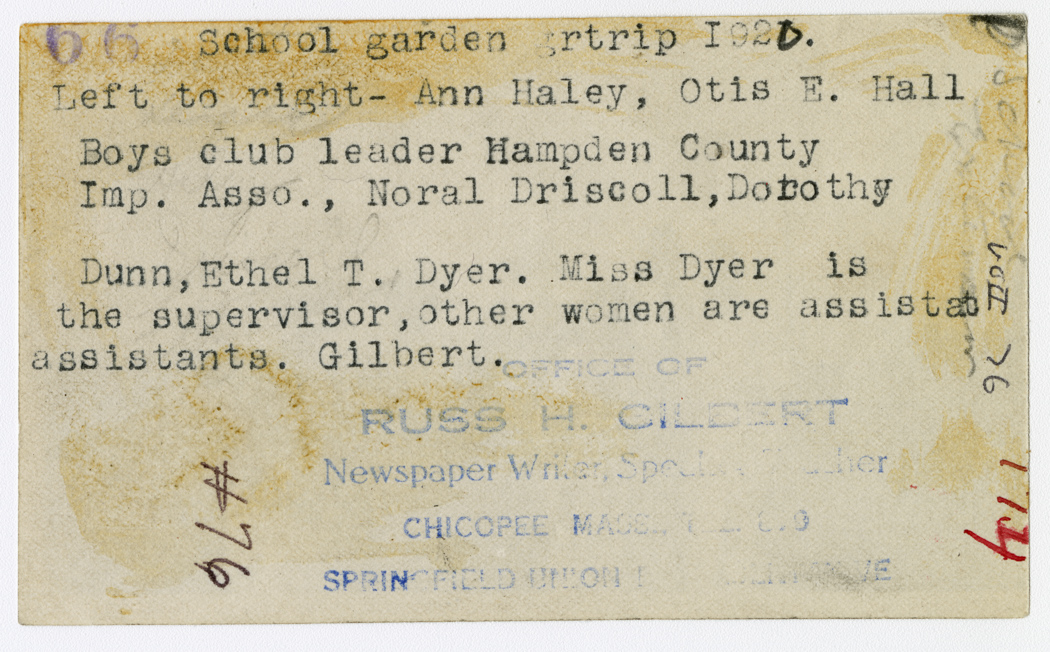 66 School garden rtrip I920.
Left to right- Ann Haley, Otis E. Hall
Boys club leader Hampden County
Imp. Asso., Noral Driscoll,Dorothy
Dunn,Ethel T. Dyer. Miss Dyer is
the supervisor,other women are assistat
assistants. Gilbert.
OFFICE OF
RUSS H. GILBERT
Newspaper Writer,
CHICOPEE MASS.
SPRINGFIELD UNION
#76
76